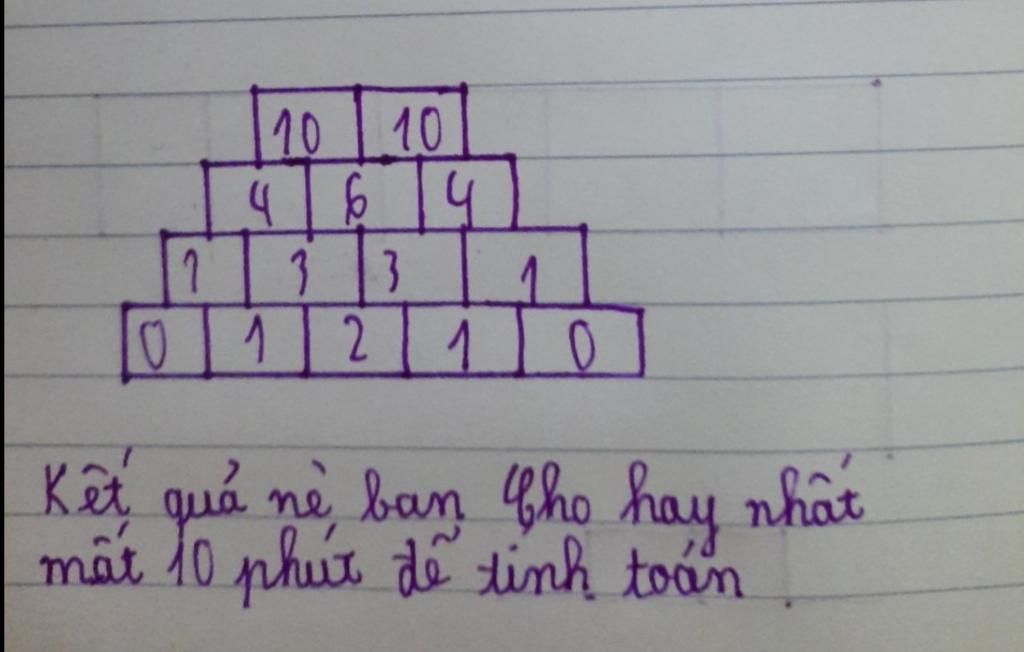 10 10
4 6 4
1 3 3 1
0 1 2 1 0
Kết quả nè bạn Cho hay nhất
mất 10 phút để tính toán